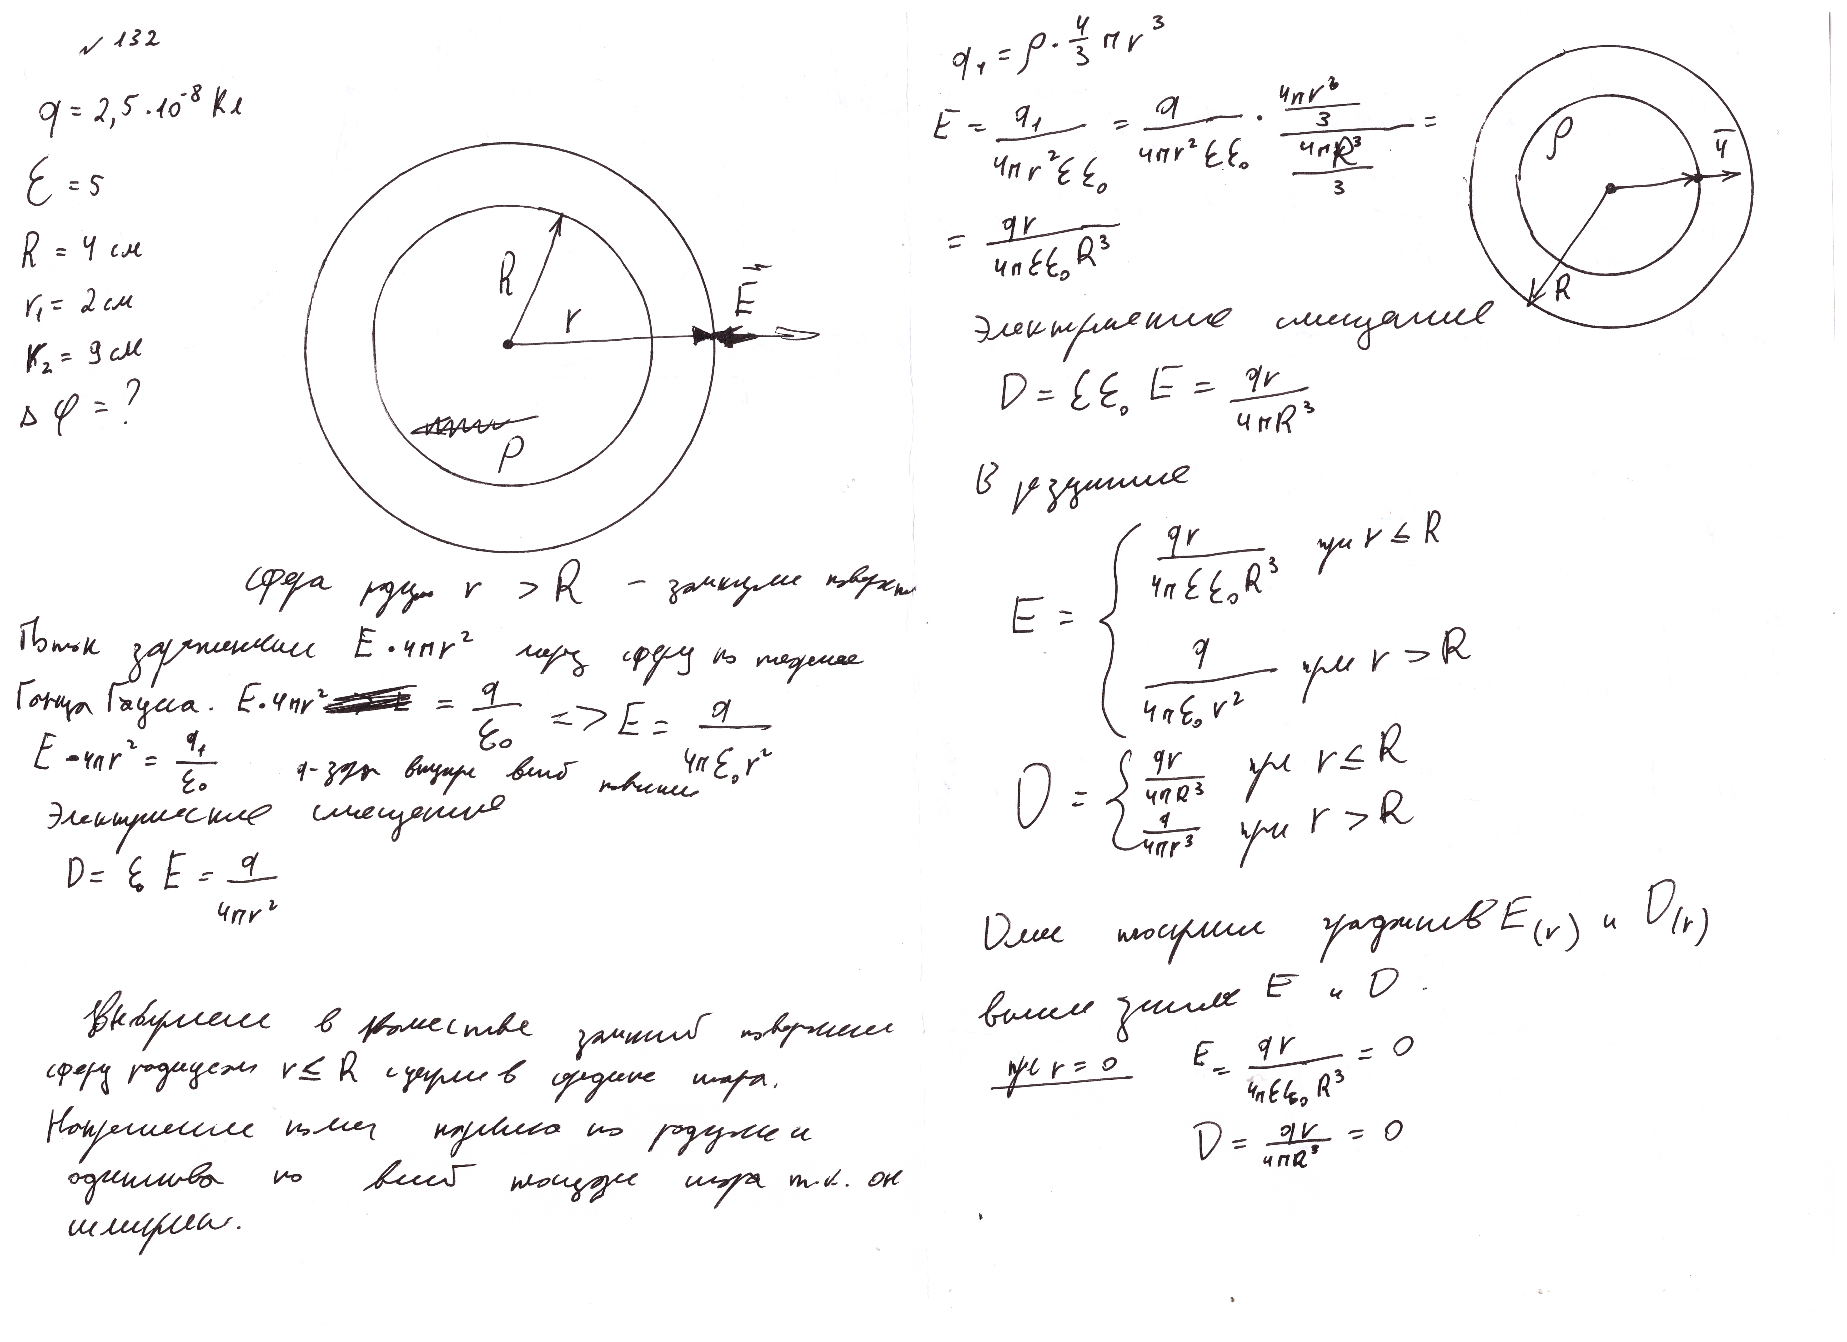 № 132
q = 2,5 · 10⁻⁸ Кл
ε = 5
R = 4 см
r₁ = 2 см
r₂ = 9 см
Δφ = ?
R
r
E
ρ
Сфера радиус r > R – замкнутые поверхн
Поток E · 4πr² через сферу по теореме
Гаусса. E · 4πr² = q/ε₀ => E = q/(4πε₀r²)
E · 4πr² = q₁/ε₀ q - внутри всей
Электрическое смещение
D = ε₀ E = q/(4πr²)
Выбираем в качестве замкнутой поверхности
сферу радиусом r ≤ R с центром в середине шара.
Напряжение по радиусу и
одинакова по всей площади шара т.к. он
q₁ = ρ · 4/3 πr³
E = q₁/(4πr²εε₀) = q/(4πr²εε₀) · (4πr³/3)/(4πR³/3) =
= qr/(4πεε₀R³)
ρ
R
Электрическое смещение
D = εε₀ E = qr/(4πR³)
В результате
E = { qr/(4πεε₀R³) при r ≤ R
q/(4πε₀r²) при r > R
D = { qr/(4πR³) при r ≤ R
q/(4πr³) при r > R
Для построения графиков E(r) и D(r)
E и D.
при r = 0 E = qr/(4πεε₀R³) = 0
D = qr/(4πR³) = 0